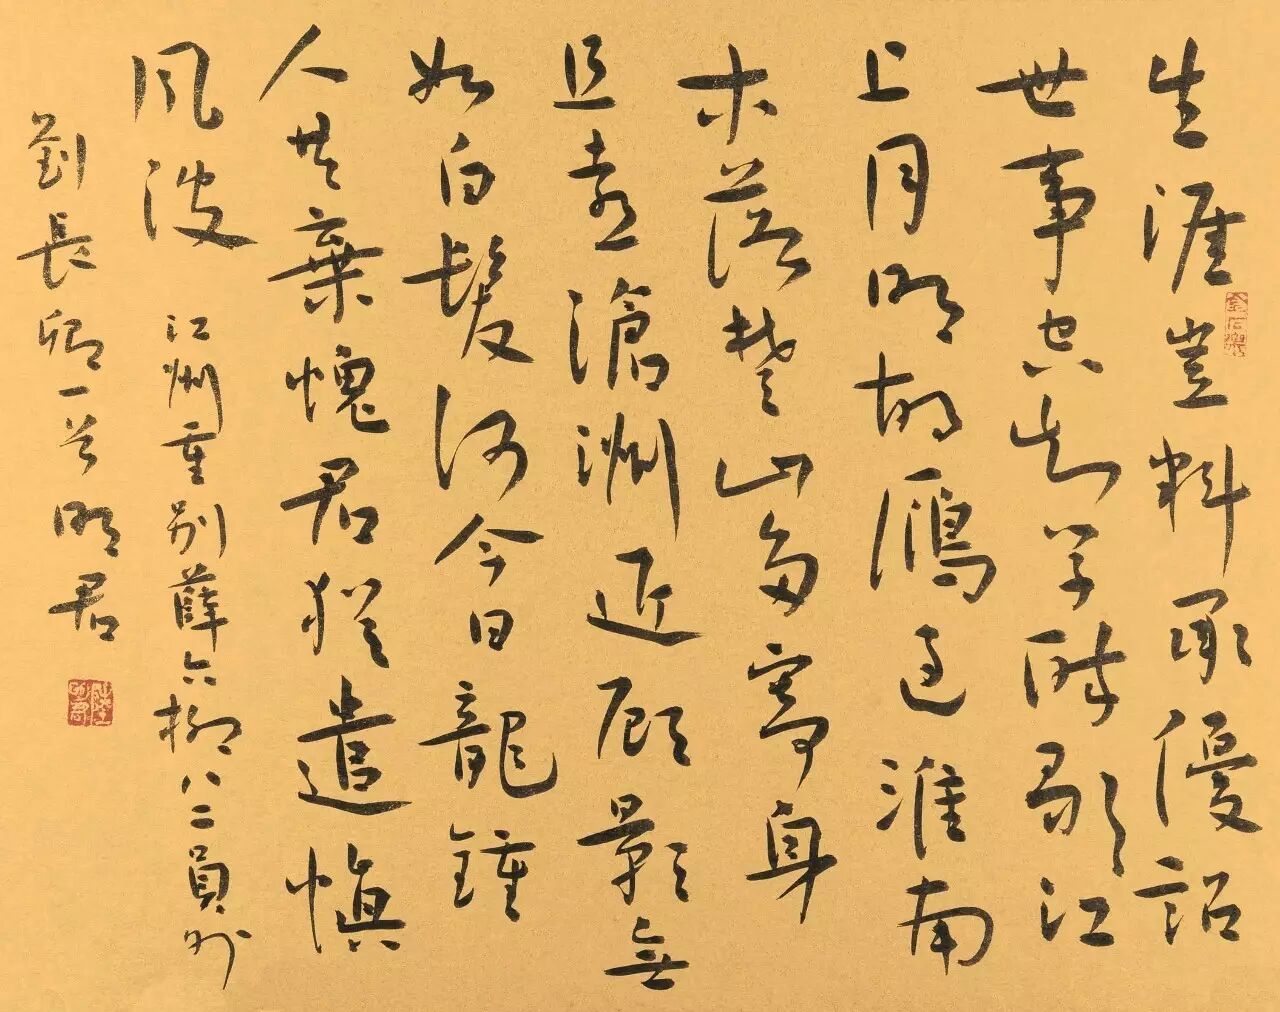 生涯豈料承優詔
世事空知學醉歌江
上月明胡鴈過淮南
木落楚山多寄身
且喜滄洲近顧影無
如白髮何今日龍鍾
人共棄愧君猶遣慎
風波 江州重别薛六柳八二員外
劉長卿一首明君